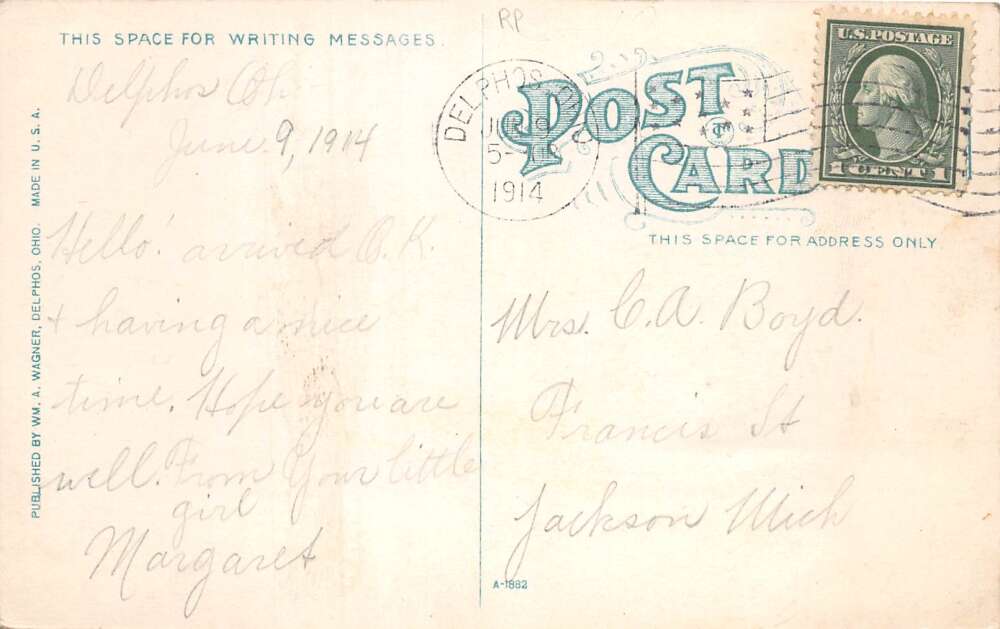 RP
THIS SPACE FOR WRITING MESSAGES.
POST CARD
THIS SPACE FOR ADDRESS ONLY
U.S. POSTAGE
1 CENT 1
DELPHOS
1914
PUBLISHED BY WM. A. WAGNER, DELPHOS, OHIO. MADE IN U. S. A.
Delphos Oh.
June 9, 1914
Hello! arrived O.K.
+ having a nice
time. Hope you are
well. From Your little
girl
Margaret
Mrs. C. A. Boyd.
Francis St
Jackson Mich
A-1882